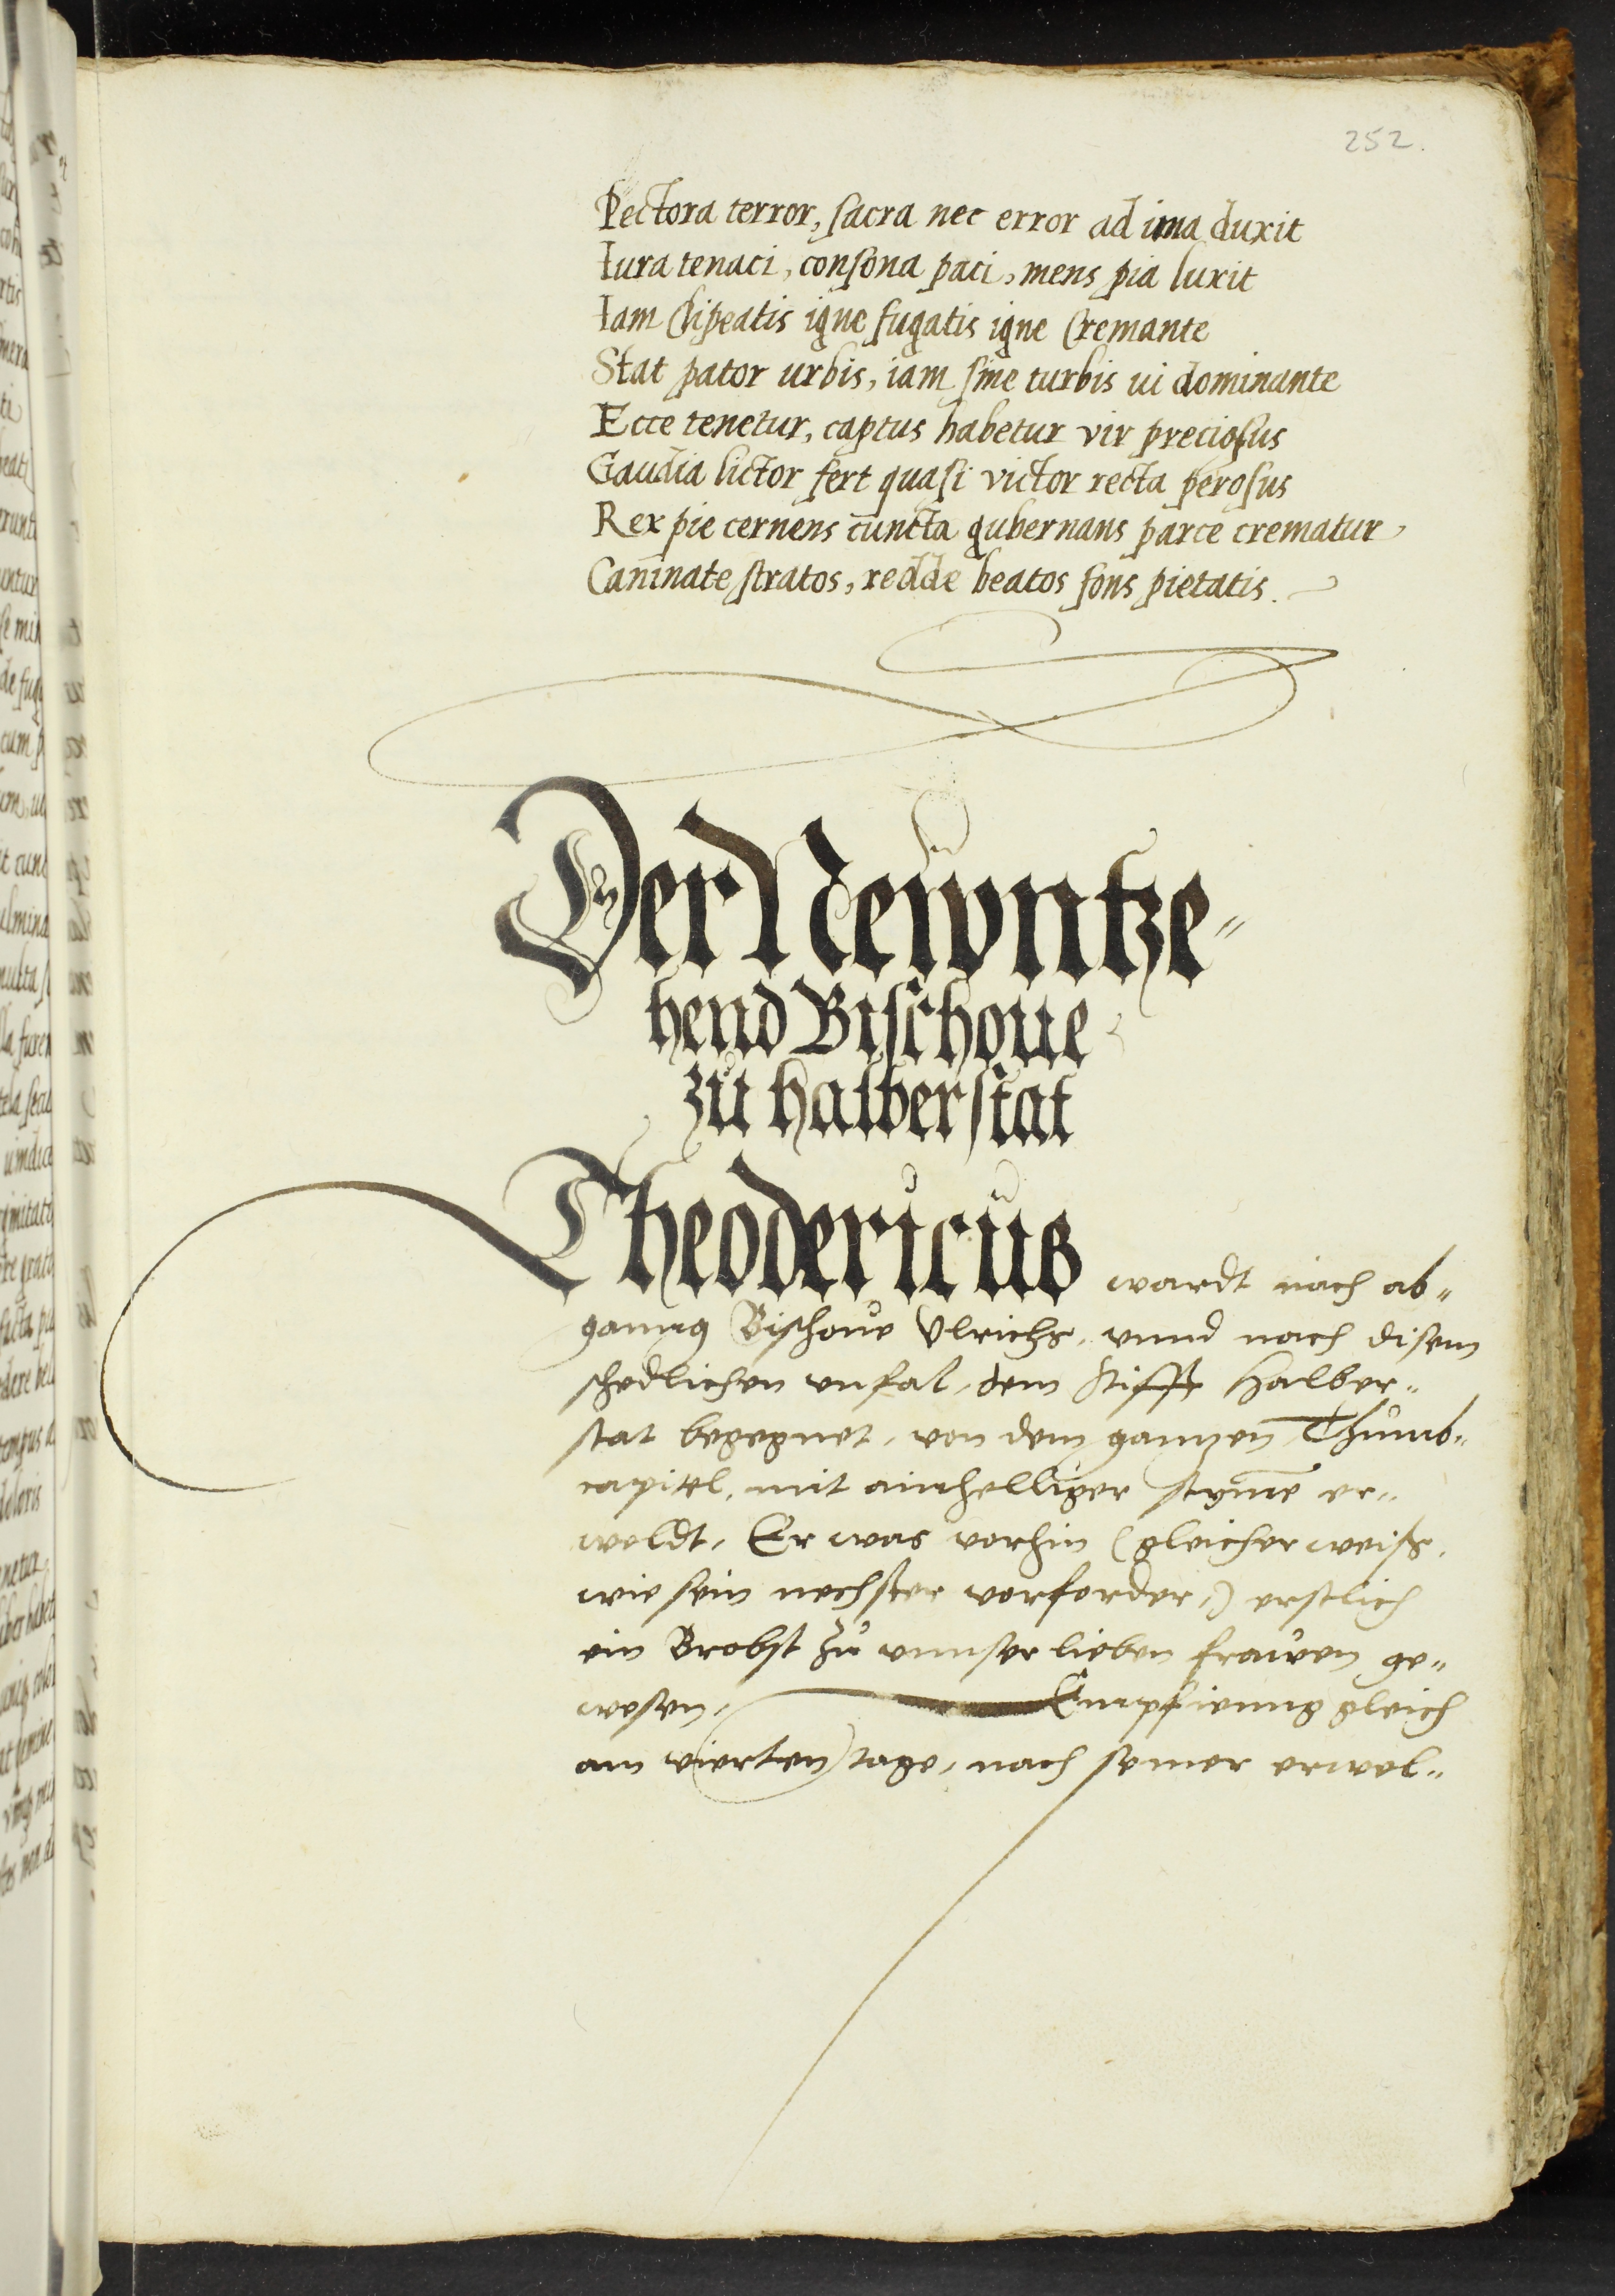 252.
Pectora terror, sacra nec error ad ima duxit
Iura tenaci, consona paci, mens pia luxit
Iam Clipeatis igne fugatis igne Cremante
Stat pator urbis, iam sine turbis ui dominante
Ecce tenetur, captus habetur vir preciosus
Gaudia lictor fert quasi victor recta perosus
Rex pie cernens cuncta gubernans parce crematur
Caninate stratos, redde beatos fons pietatis.
Der Newntze-
hend Bischoue
zu halberstat
Theodericus wardt nach ab-
ganng Bischoue Vlrichs, vnnd nach disem
schedlichen vnfal, dem Stifft Halber-
stat begegnet, von dem gantzen Thumb-
capittel, mit ainhelliger stym̄e er-
weldt, Er was vorhin (gleicher weiß,
wie sein nechster vorforder,) erstlich
ein Brobst zu vnnser lieben frawen ge-
wesen, Empfienng gleich
am vierten tage, nach seiner erwel-